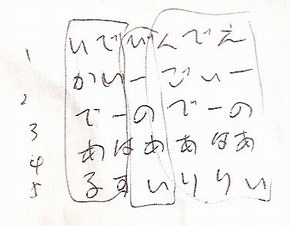 えーのあい
でぃーはり
んごであり
びーのあい
でぃーはす
いかである
1
2
3
4
5